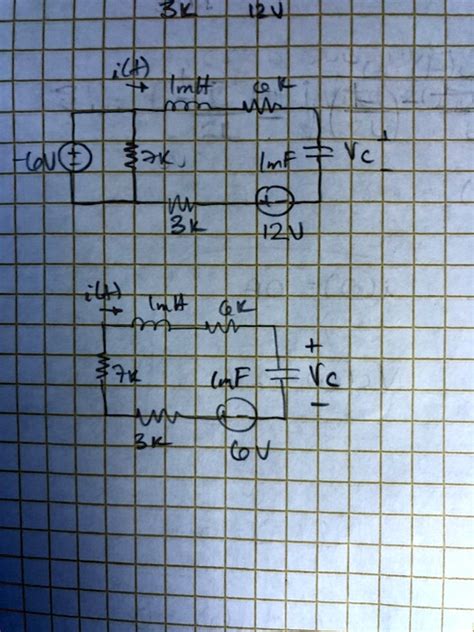 3K 12V
i(t) 1mH 6K
-6V 7K 1mF Vc +
-
3K 12V
i(t) 1mH 6K
+
7K 1mF Vc
-
3K 6V